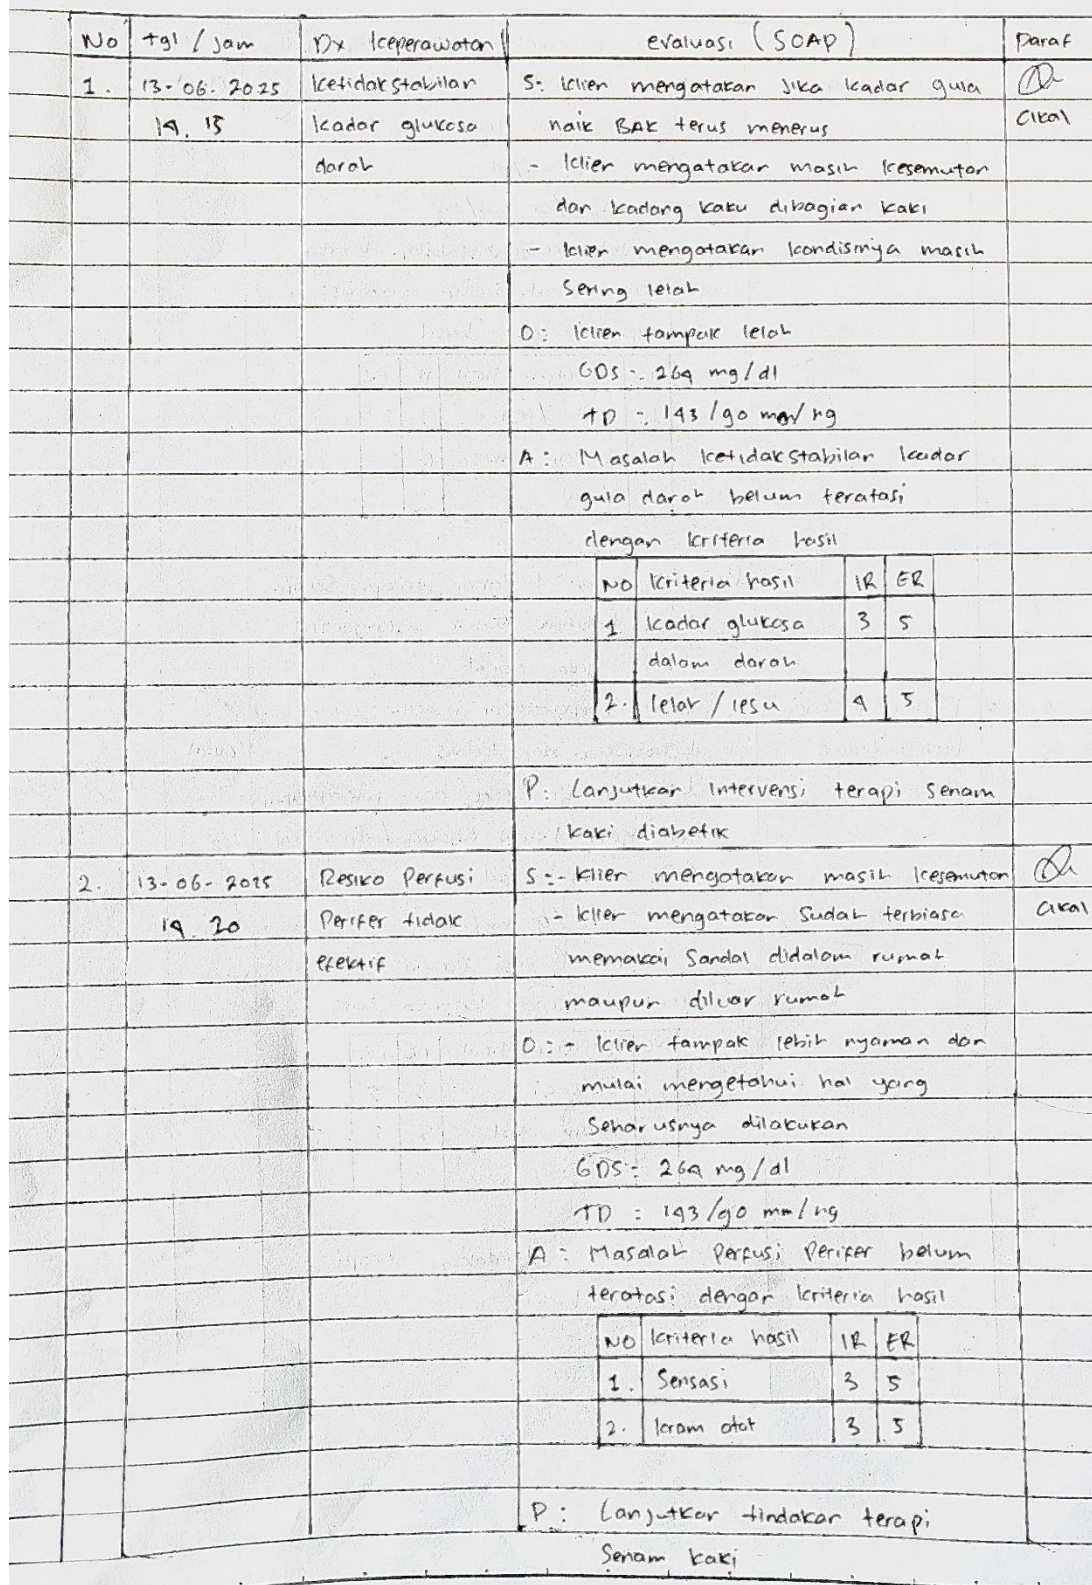 No | tgl / Jam | Dx Keperawatan | evaluasi (SOAP) | Paraf
1. | 13-06-2025 | Ketidakstabilan | S: Klien mengatakan Jika kadar gula
14.15 | kadar glukosa | naik BAK terus menerus | Cikal
darah | - Klien mengatakan masih Kesemutan
dan kadang kaku dibagian kaki
- Klien mengatakan kondisinya masih
Sering lelah
O: Klien tampak lelah
GDS : 264 mg/dl
TD : 143/90 mm/Hg
A: Masalah Ketidakstabilan kadar
gula darah belum teratasi
dengan kriteria hasil
NO | Kriteria hasil | IR | ER
1 | Kadar glukosa | 3 | 5
dalam darah
2. | lelah / lesu | 4 | 5
P: Lanjutkan Intervensi terapi Senam
kaki diabetik
2. | 13-06-2025 | Resiko Perfusi | S: - Klien mengatakan masih Kesemutan
14.20 | Perifer tidak | - Klien mengatakan Sudah terbiasa | Cikal
efektif | memakai Sandal didalam rumah
maupun diluar rumah
O: - Klien tampak lebih nyaman dan
mulai mengetahui hal yang
Seharusnya dilakukan
GDS : 264 mg/dl
TD : 143/90 mm/Hg
A: Masalah Perfusi Perifer belum
teratasi dengan kriteria hasil
NO | Kriteria hasil | IR | ER
1. | Sensasi | 3 | 5
2. | Kram otot | 3 | 5
P: Lanjutkan tindakan terapi
Senam kaki